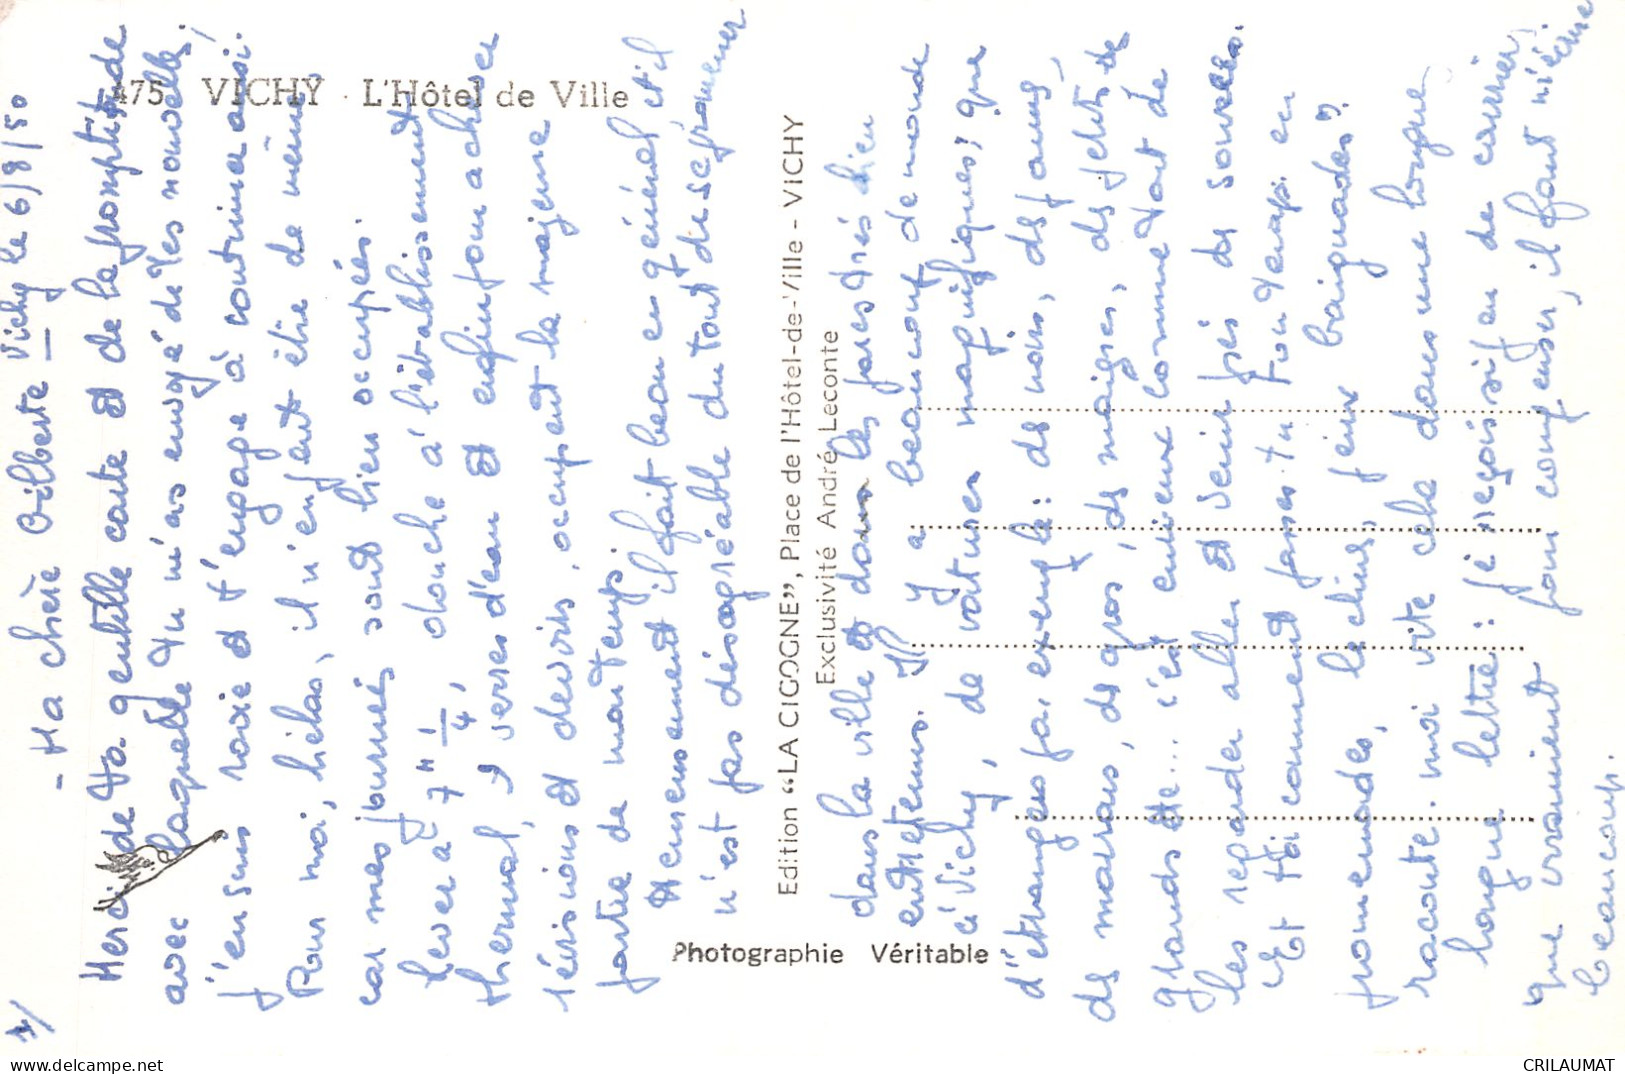 475 VICHY - L'Hôtel de Ville
Vichy le 6/8/50
- Ma chère Gilberte -
Merci de ta gentille carte et de la promptitude
avec laquelle tu m'as envoyé de tes nouvelles,
j'en suis ravie et t'engage à continuer ainsi.
Pour moi, hélas, il n'en peut être de même
car mes journées sont bien occupées.
Lever à 7h 1/4, douche à l'établissement
thermal, verres d'eau et enfin pour achever
révisions et devoirs, occupent la majeure
partie de mon temps.
Heureusement il fait beau en général et il
n'est pas désagréable du tout de se promener
Edition "LA CIGOGNE", Place de l'Hôtel-de-Ville - VICHY
Exclusivité André Leconte
Photographie Véritable
dans la ville et dans les parcs très bien
entretenus. Il y a beaucoup de monde
à Vichy, de voitures magnifiques, que
d'étrangers pa, exemple : de noirs, de jaunes,
de marrons, de gros, de maigres, de petits de
grands etc... c'est curieux comme tout de
les regarder aller et venir près des sources.
Et toi comment passes-tu ton temps en
promenades, lectures, jeux baignades ?
raconte-moi vite cela dans une longue
longue lettre : je reçois si peu de courrier
que vraiment pour compenser, il faut m'écrire
beaucoup.
CRILAUMAT